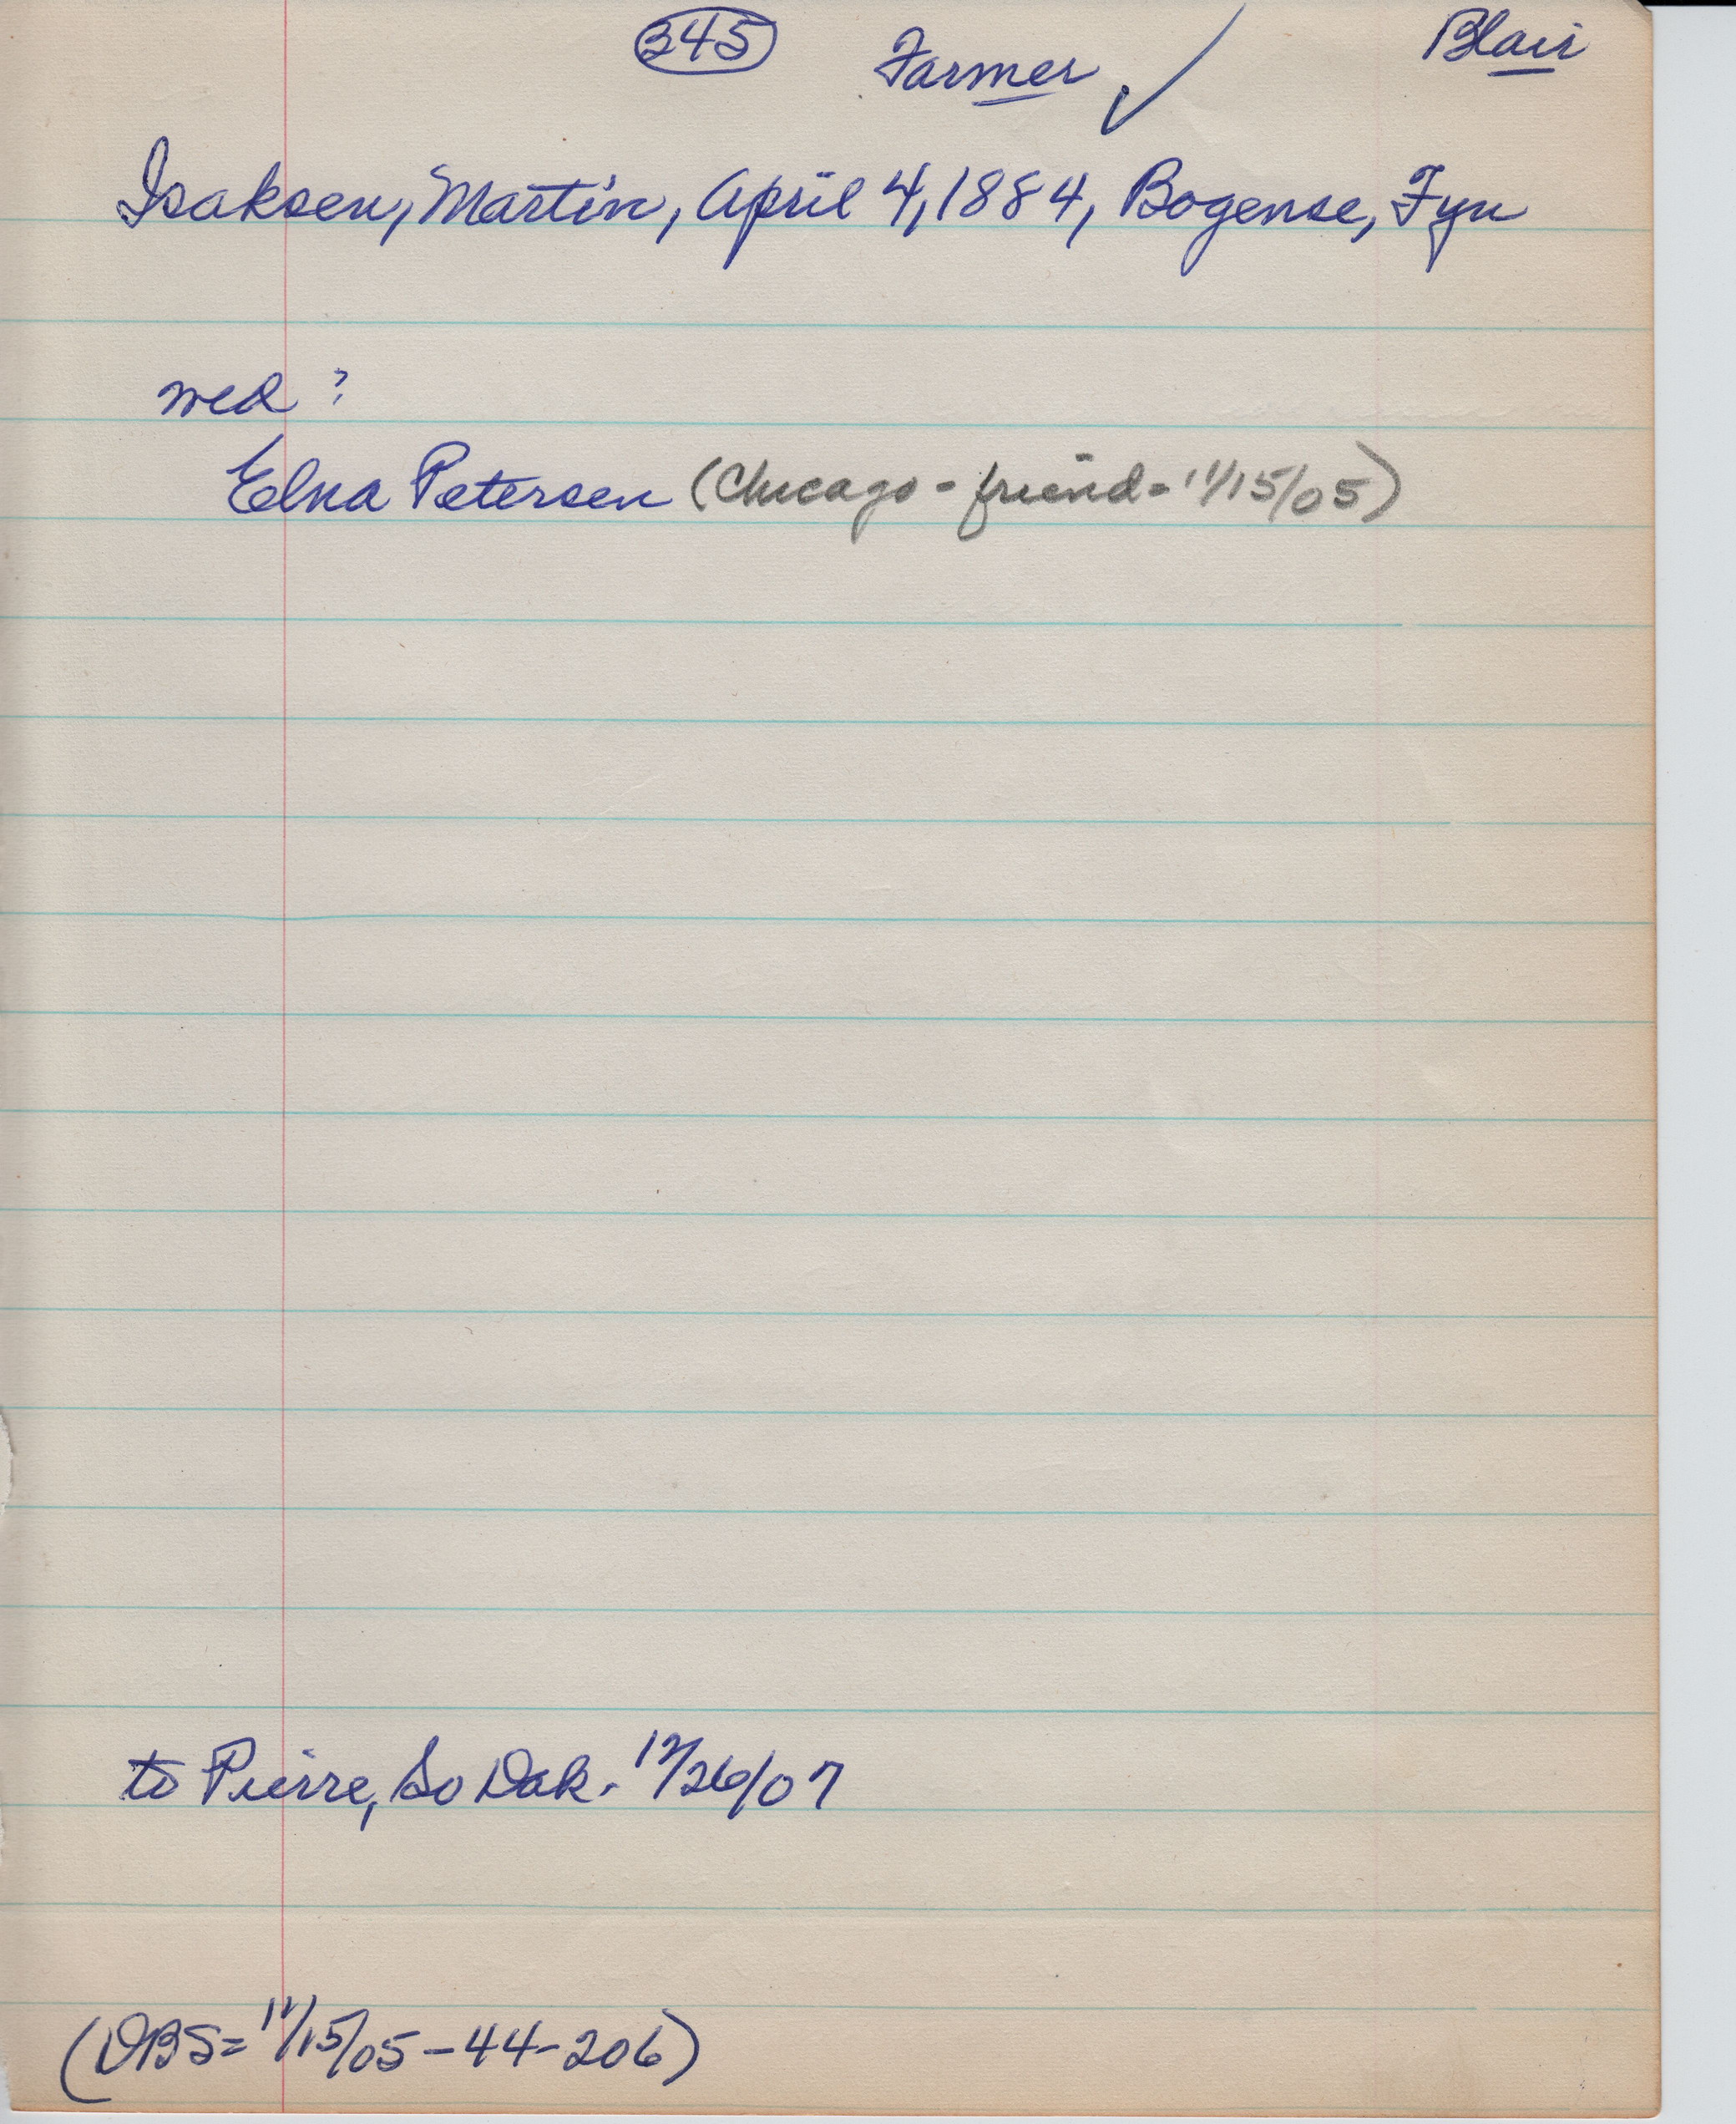 345 Farmer ✓ Blair
Isaksen, Martin, April 4, 1884, Bogense, Fyn
wed ?
Elna Petersen (Chicago - friend - 11/15/05)
to Pierre, So Dak. 12/26/07
(DBS = 11/15/05 - 44 - 206)